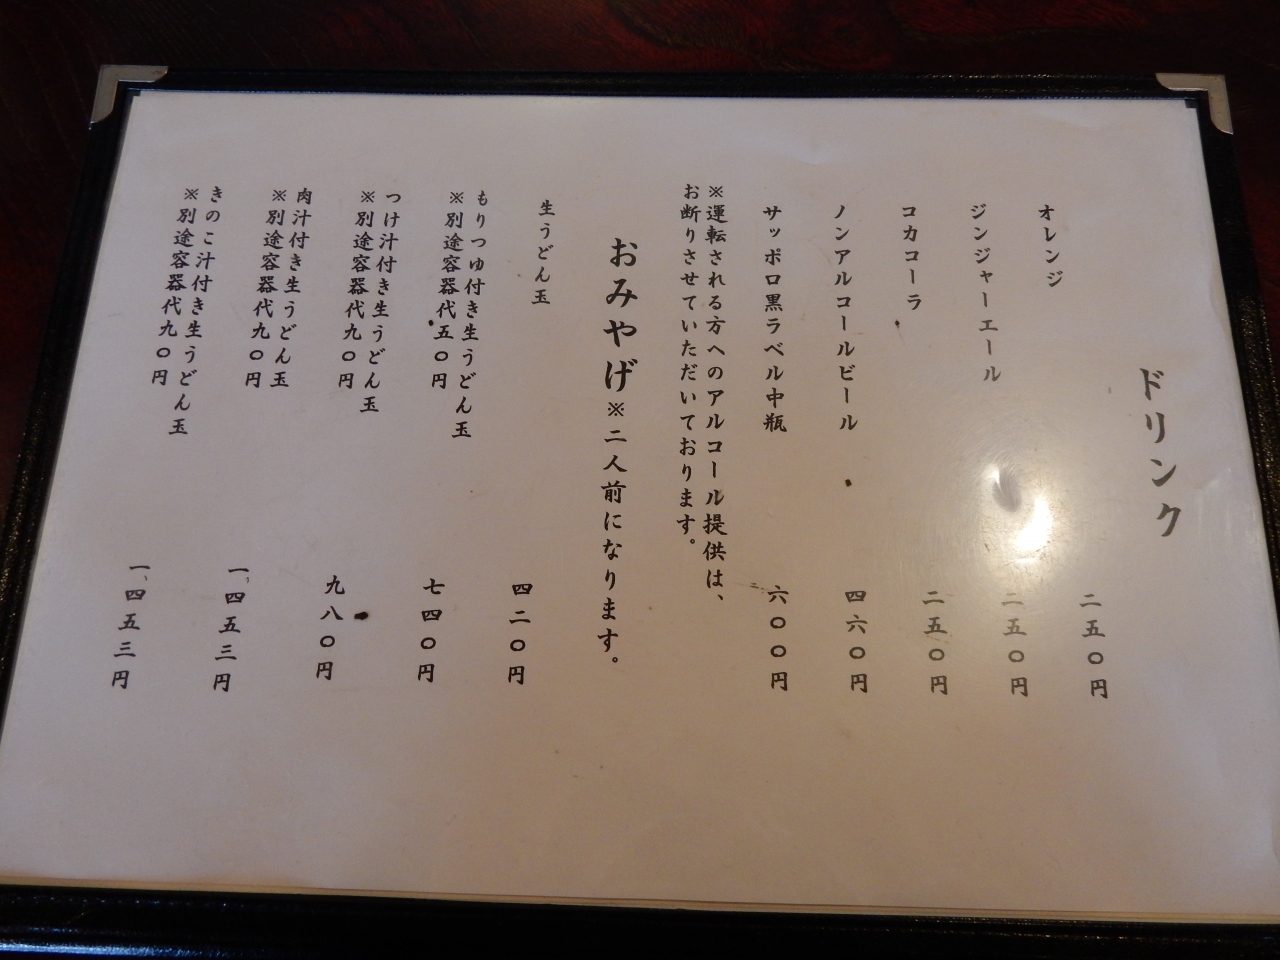 ドリンク
オレンジ 二五〇円
ジンジャーエール 二五〇円
コカコーラ 二五〇円
ノンアルコールビール 四六〇円
サッポロ黒ラベル中瓶 六〇〇円
※運転される方へのアルコール提供は、
お断りさせていただいております。
おみやげ※二人前になります。
生うどん玉 四二〇円
もりつゆ付き生うどん玉 七四〇円
※別途容器代五〇円
つけ汁付き生うどん玉 九八〇円
※別途容器代九〇円
肉汁付き生うどん玉 一、四五三円
※別途容器代九〇円
きのこ汁付き生うどん玉 一、四五三円
※別途容器代九〇円